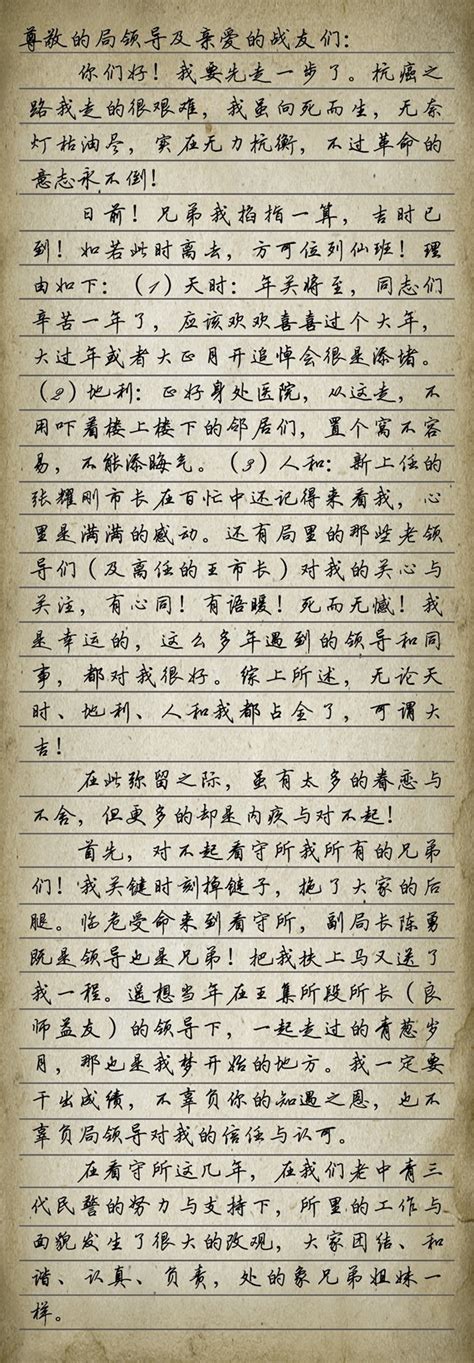 尊敬的局领导及亲爱的战友们：
你们好！我要先走一步了。抗癌之
路我走的很艰难，我虽向死而生，无奈
灯枯油尽，实在无力抗衡，不过革命的
意志永不倒！
日前！兄弟我掐指一算，吉时已
到！如若此时离去，方可位列仙班！理
由如下：（1）天时：年关将至，同志们
辛苦一年了，应该欢欢喜喜过个大年，
大过年或者大正月开追悼会很是添堵。
（2）地利：正好身处医院，从这走，不
用吓着楼上楼下的邻居们，置个窝不容
易，不能添晦气。（3）人和：新上任的
张耀刚市长在百忙中还记得来看我，心
里是满满的感动。还有局里的那些老领
导们（及离任的王市长）对我的关心与
关注，有心同！有语暖！死而无憾！我
是幸运的，这么多年遇到的领导和同
事，都对我很好。综上所述，无论天
时、地利、人和我都占全了，可谓大
吉！
在此弥留之际，虽有太多的眷恋与
不舍，但更多的却是内疚与对不起！
首先，对不起看守所我所有的兄弟
们！我关键时刻掉链子，拖了大家的后
腿。临危受命来到看守所，副局长陈勇
既是领导也是兄弟！把我扶上马又送了
我一程。遥想当年在王集所段所长（良
师益友）的领导下，一起走过的青葱岁
月，那也是我梦开始的地方。我一定要
干出成绩，不辜负你的知遇之恩，也不
辜负局领导对我的信任与认可。
在看守所这几年，在我们老中青三
代民警的努力与支持下，所里的工作与
面貌发生了很大的改观，大家团结、和
谐、认真、负责，处的象兄弟姐妹一
样。